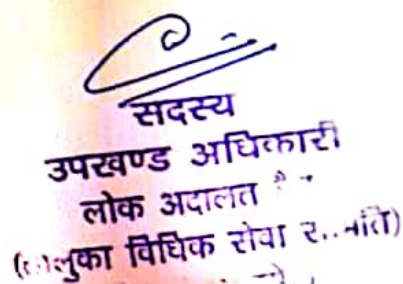 सदस्य
उपखण्ड अधिकारी
लोक अदालत
विधिक सेवा